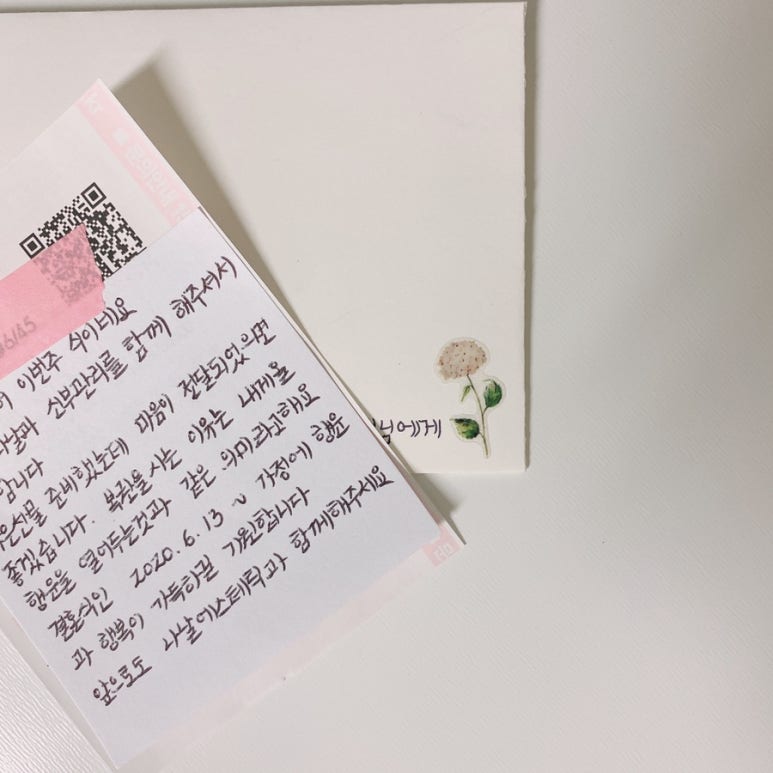 이번주 식이네요
신부관리를 함께 해주셔서
합니다
은선물 준비했는데 마음이 전달되었으면
좋겠습니다. 복권을 사는 이유는 내게올
행운을 열어두는것과 같은 의미라고해요
결혼식인 2020.6.13 ~ 가정에 행운
과 행복이 가득하길 기원합니다
앞으로도 나날에스테틱과 함께해주세요
님에게